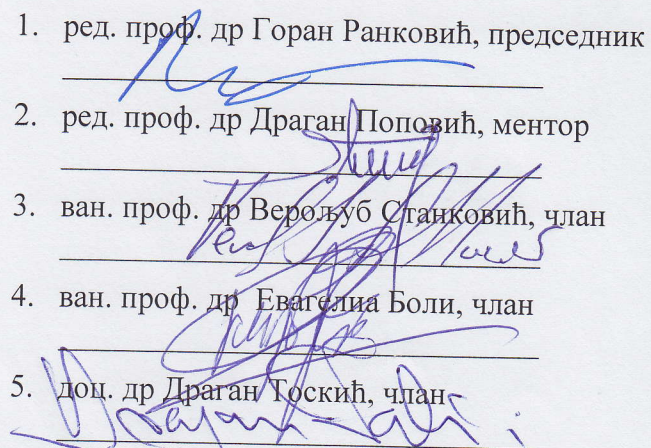 1. ред. проф. др Горан Ранковић, председник
2. ред. проф. др Драган Поповић, ментор
3. ван. проф. др Верољуб Станковић, члан
4. ван. проф. др Евагелиа Боли, члан
5. доц. др Драган Тоскић, члан